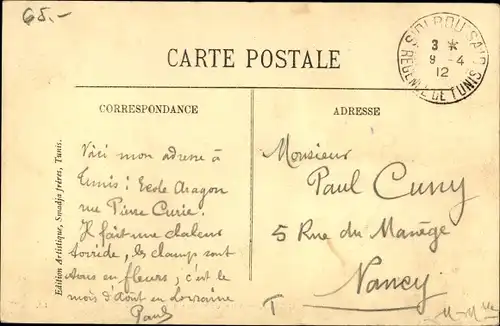 65.-
SIDI BOU SAID
3 *
9 -4
12
RÉGENCE DE TUNIS
CARTE POSTALE
CORRESPONDANCE
ADRESSE
Voici mon adresse à
Tunis : Ecole Aragon
rue Pierre Curie.
Il fait une chaleur
torride, les champs sont
en fleurs, c'est le
mois d'août en Lorraine
Paul
Monsieur
Paul Cuny
5 Rue du Manège
Nancy
T
Edition Artistique, Smadja frères, Tunis.